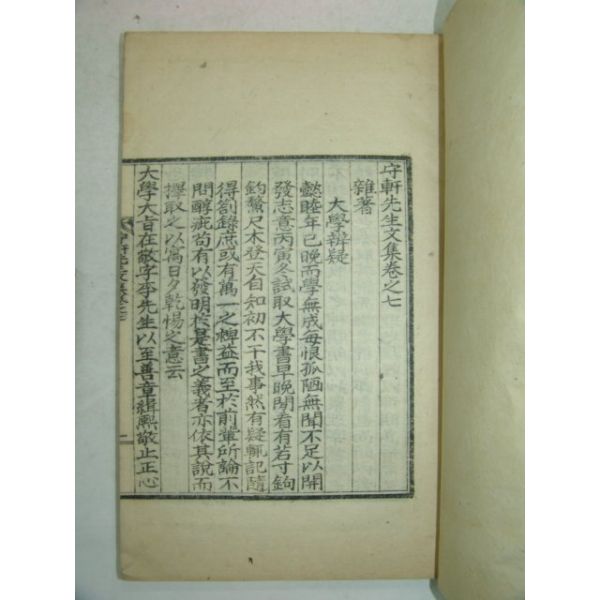 守軒先生文集卷之七
雜著
大學辨疑
懿睦年已晚而學無成每恨孤陋無聞不足以開
發志意丙寅冬試取大學書早晚閒看有若寸鉤
釣鰲尺木登天自知初不干我事然有疑輒記隨
得箚錄庶或有萬一之裨益而至於前輩所論不
問醇疵苟有以發明於是書之義者亦依其說而
取之以寓日夕乾惕之意云
大學大旨在敬字李先生以至善章緝熙敬止正心